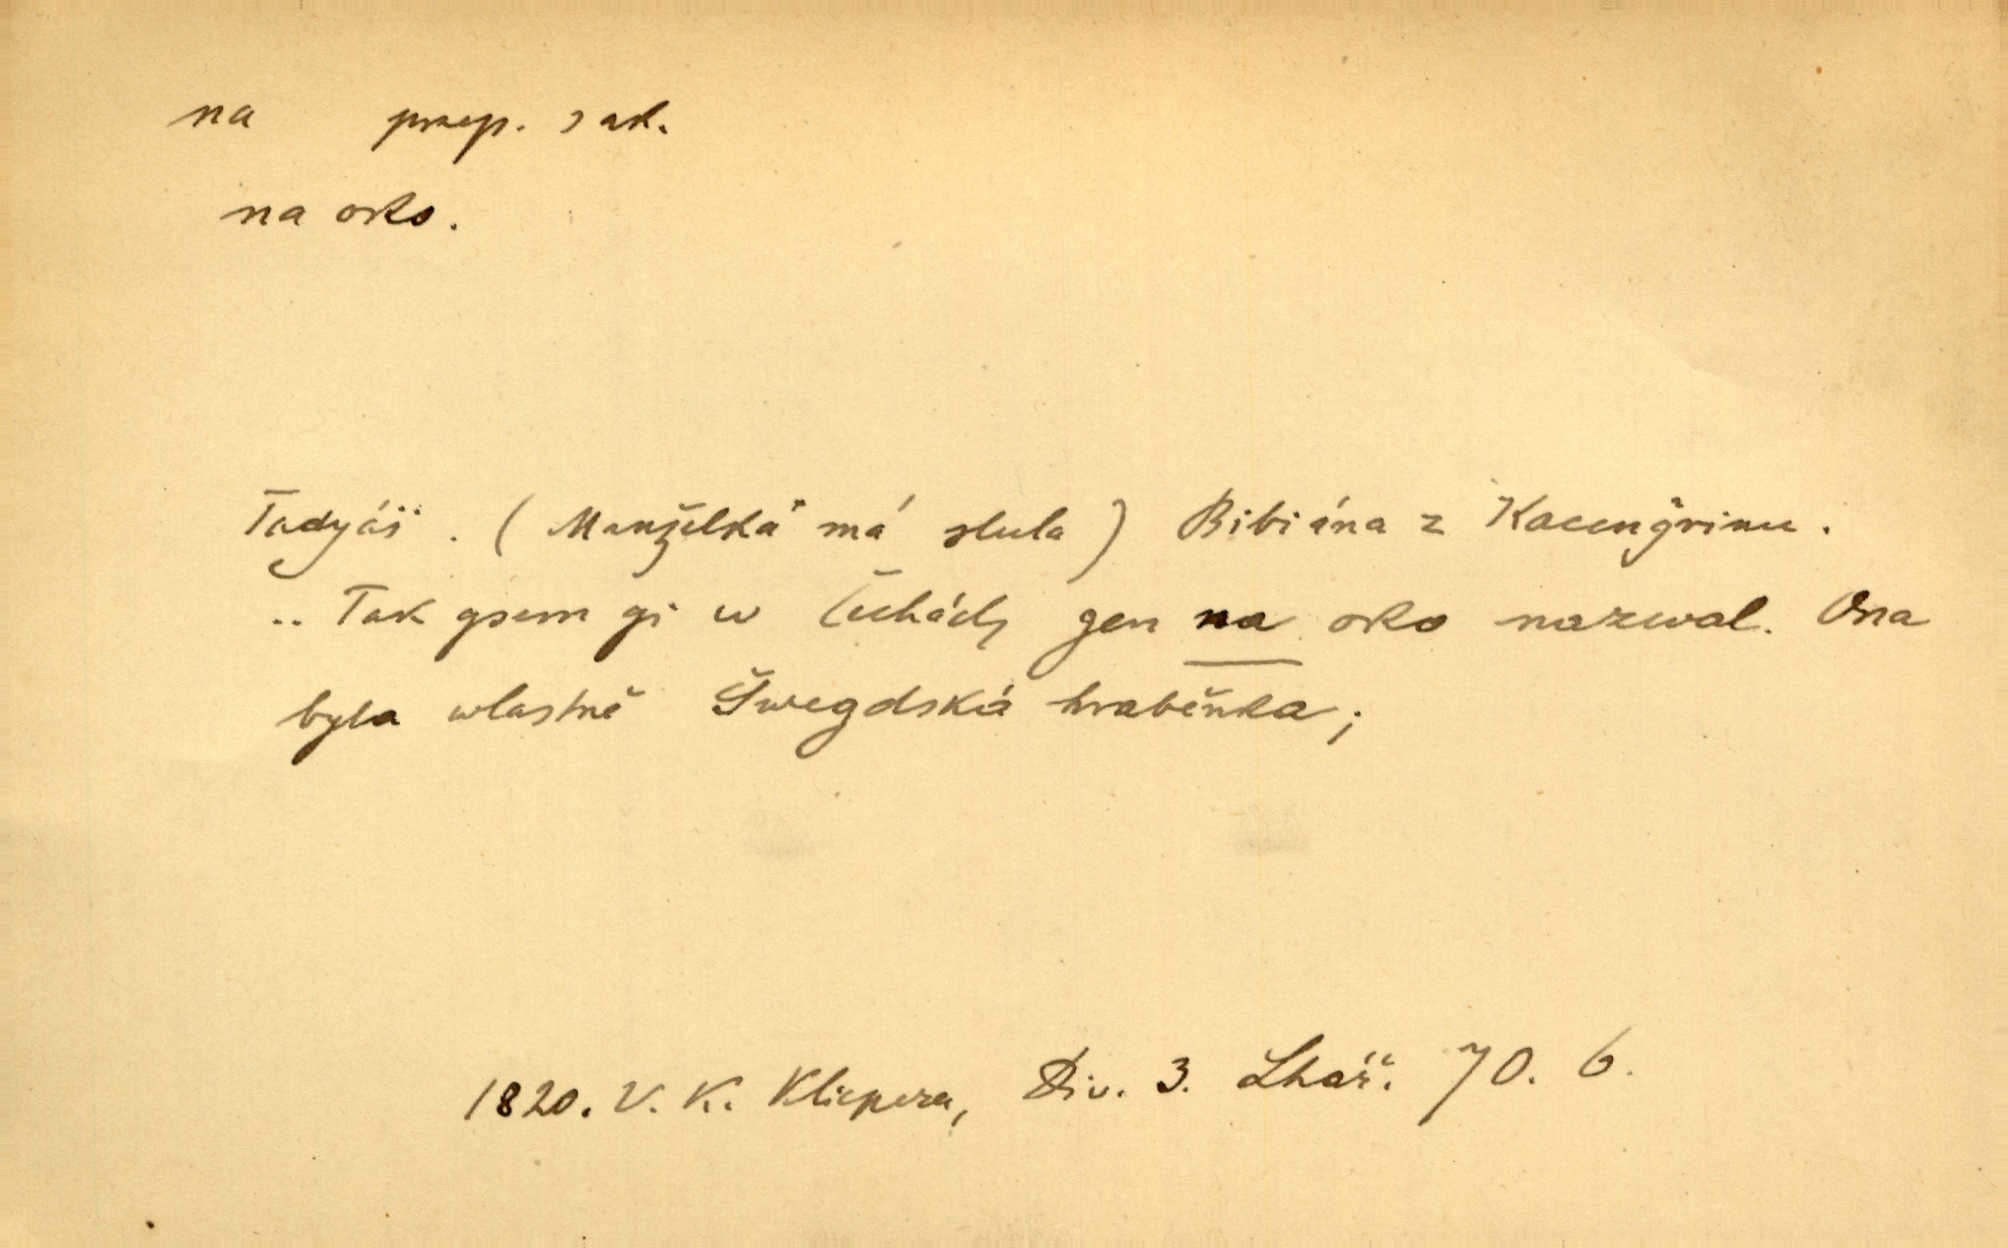 na praep. s ak.
na oko.
Tadyáš. (Manželka má slula) Bibiána z Kacengrinu.
.. Tak gsem gi w Čechách gen na oko nazwal. Ona
byla wlastně Šwegdská hraběnka;
1820. V. K. Klicpera, Div. 3. Lhář. 70. 6.